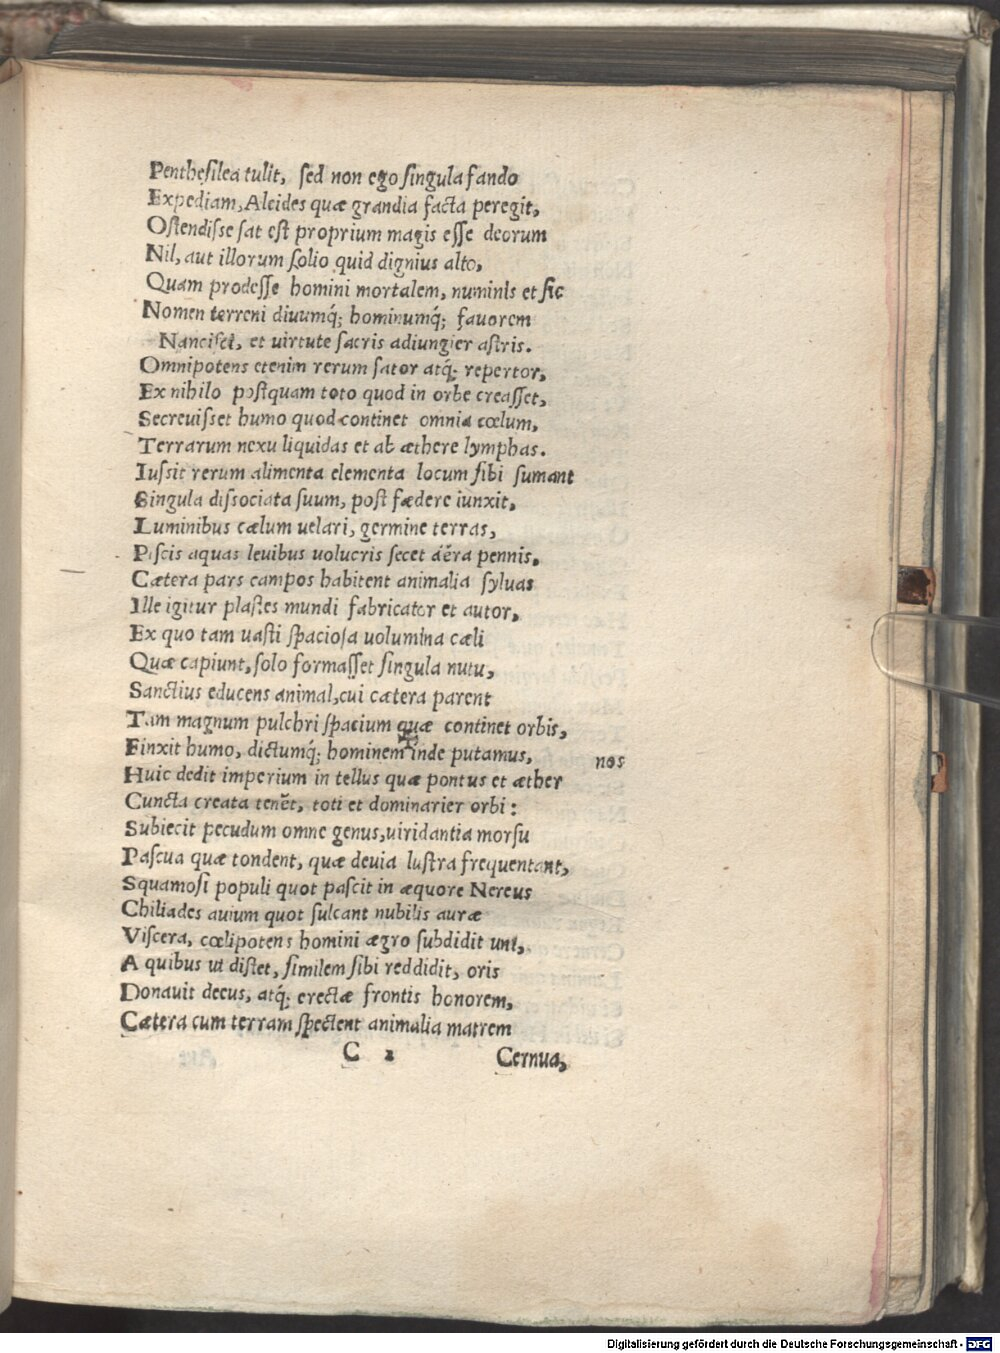 Pentheſilea tulit, ſed non ego ſingula fando
Expediam, Alcides quæ grandia facta peregit,
Oſtendiſſe ſat eſt proprium magis eſſe deorum
Nil, aut illorum ſolio quid dignius alto,
Quam prodeſſe homini mortalem, numinis et ſic
Nomen terreni diuumq́; hominumq́; fauorem
Nanciſci, et uirtute ſacris adiungier aſtris.
Omnipotens etenim rerum ſator atq́; repertor,
Ex nihilo poſtquam toto quod in orbe creaſſet,
Secreuiſſet humo quod continet omnia cœlum,
Terrarum nexu liquidas et ab æthere lymphas.
Iuſsit rerum alimenta elementa locum ſibi ſumant
Singula diſsociata ſuum, poſt fædere iunxit,
Luminibus cælum uelari, germine terras,
Piſcis aquas leuibus uolucris ſecet aëra pennis,
Cætera pars campos habitent animalia ſyluas
Ille igitur plaſtes mundi fabricator et autor,
Ex quo tam uaſti ſpacioſa uolumina cæli
Quæ capiunt, ſolo formaſſet ſingula nutu,
Sanctius educens animal, cui cætera parent
Tam magnum pulchri ſpacium quæ continet orbis,
Finxit humo, dictumq́; hominem inde putamus,
nos
Huic dedit imperium in tellus quæ pontus et æther
Cuncta creata tenēt, toti et dominarier orbi:
Subiecit pecudum omne genus, uiridantia morſu
Paſcua quæ tondent, quæ deuia luſtra frequentant,
Squamoſi populi quot paſcit in æquore Nereus
Chiliades auium quot ſulcant nubilis auræ
Viſcera, cœlipotens homini ægro ſubdidit uni,
A quibus ut diſtet, ſimilem ſibi reddidit, oris
Donauit decus, atq́; erectæ frontis honorem,
Cætera cum terram ſpectent animalia matrem
C 2 Cernua,
Digitalisierung gefördert durch die Deutsche Forschungsgemeinschaft - DFG